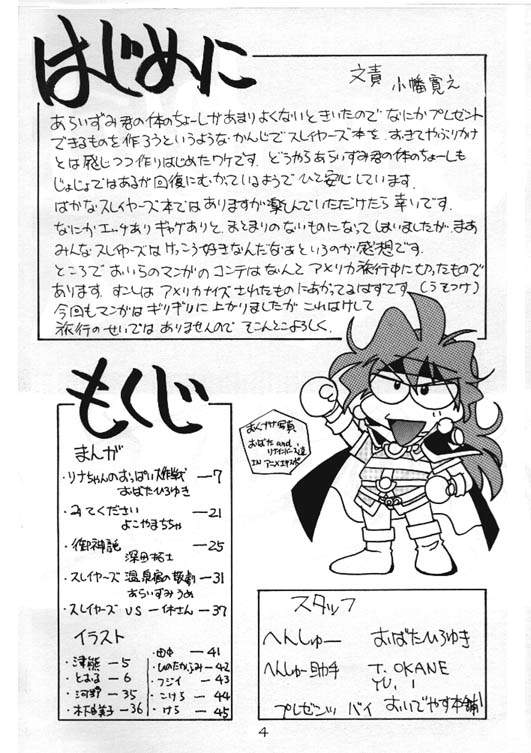 はじめに
文責 小幡寛之
あらいずみ君の体のちょーしがあまりよくないときいたので なにか プレゼント
できるものを作ろうというような かんじで スレイヤーズ本を、おきてやぶりかけ
とは感じつつ作りはじめたワケです。どうやらあらいずみ君の体のちょーしも
じょじょではあるが回復にむかっているようで ひと安心しています。
ばかな スレイヤーズ本ではありますが楽しんでいただけたら 幸いです。
なにか エッチあり ギャグありと、まとまりのないものになってしまいましたが、まあ
みんな スレイヤーズは けっこう好きなんだなあというのが 感想です。
ところで おいらのマンガのコンテは なんと アメリカ旅行中に切ったもので
あります。すこしは アメリカナイズされたものにあがってるはずです。(うそつけ)
今回もマンガは ギリギリに 上がりましたが これはけして
旅行のせいでは ありませんので そこんとこよろしく。
もくじ
まんが
・リナちゃんのおっぱい大作戦 —7
おばたひろゆき
・みてください —21
よこやまちちゃ
・御神説 —25
深田拓士
・スレイヤーズ 温泉宿の惨劇 —31
あらいずみうめ
・スレイヤーズ VS 一休さん —37
イラスト
・津熊 —5
・とおる —6
・河野 —35
・木下由美子 —36
・田中 —41
・ひのたかふみ —42
・フジイ —43
・こけら —44
・けら —45
おくつけ写真
おばた and
リナインバース達
IN アニメエキスポ
スタッフ
へんしゅー おばたひろゆき
へんしゅー助手 T. OKANE
YU. I
プレゼンツ バイ おいでやす本舗
4